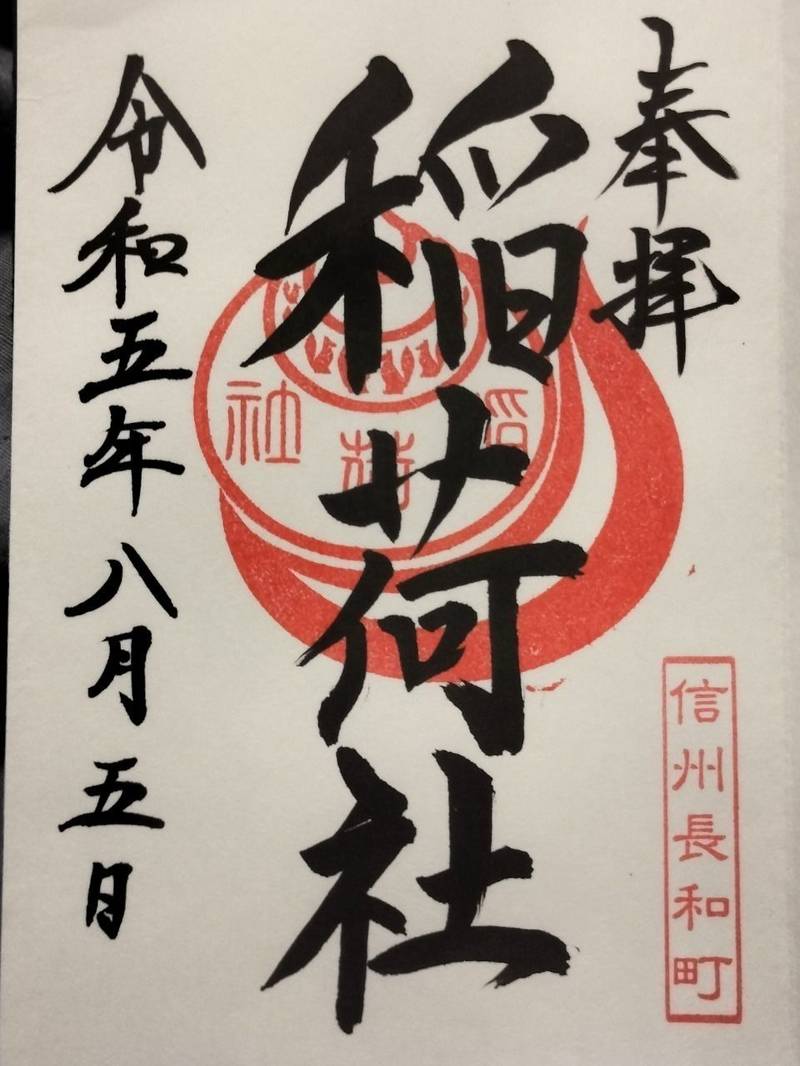 奉拝
信州長和町
稲荷社
稲荷社
令和五年八月五日